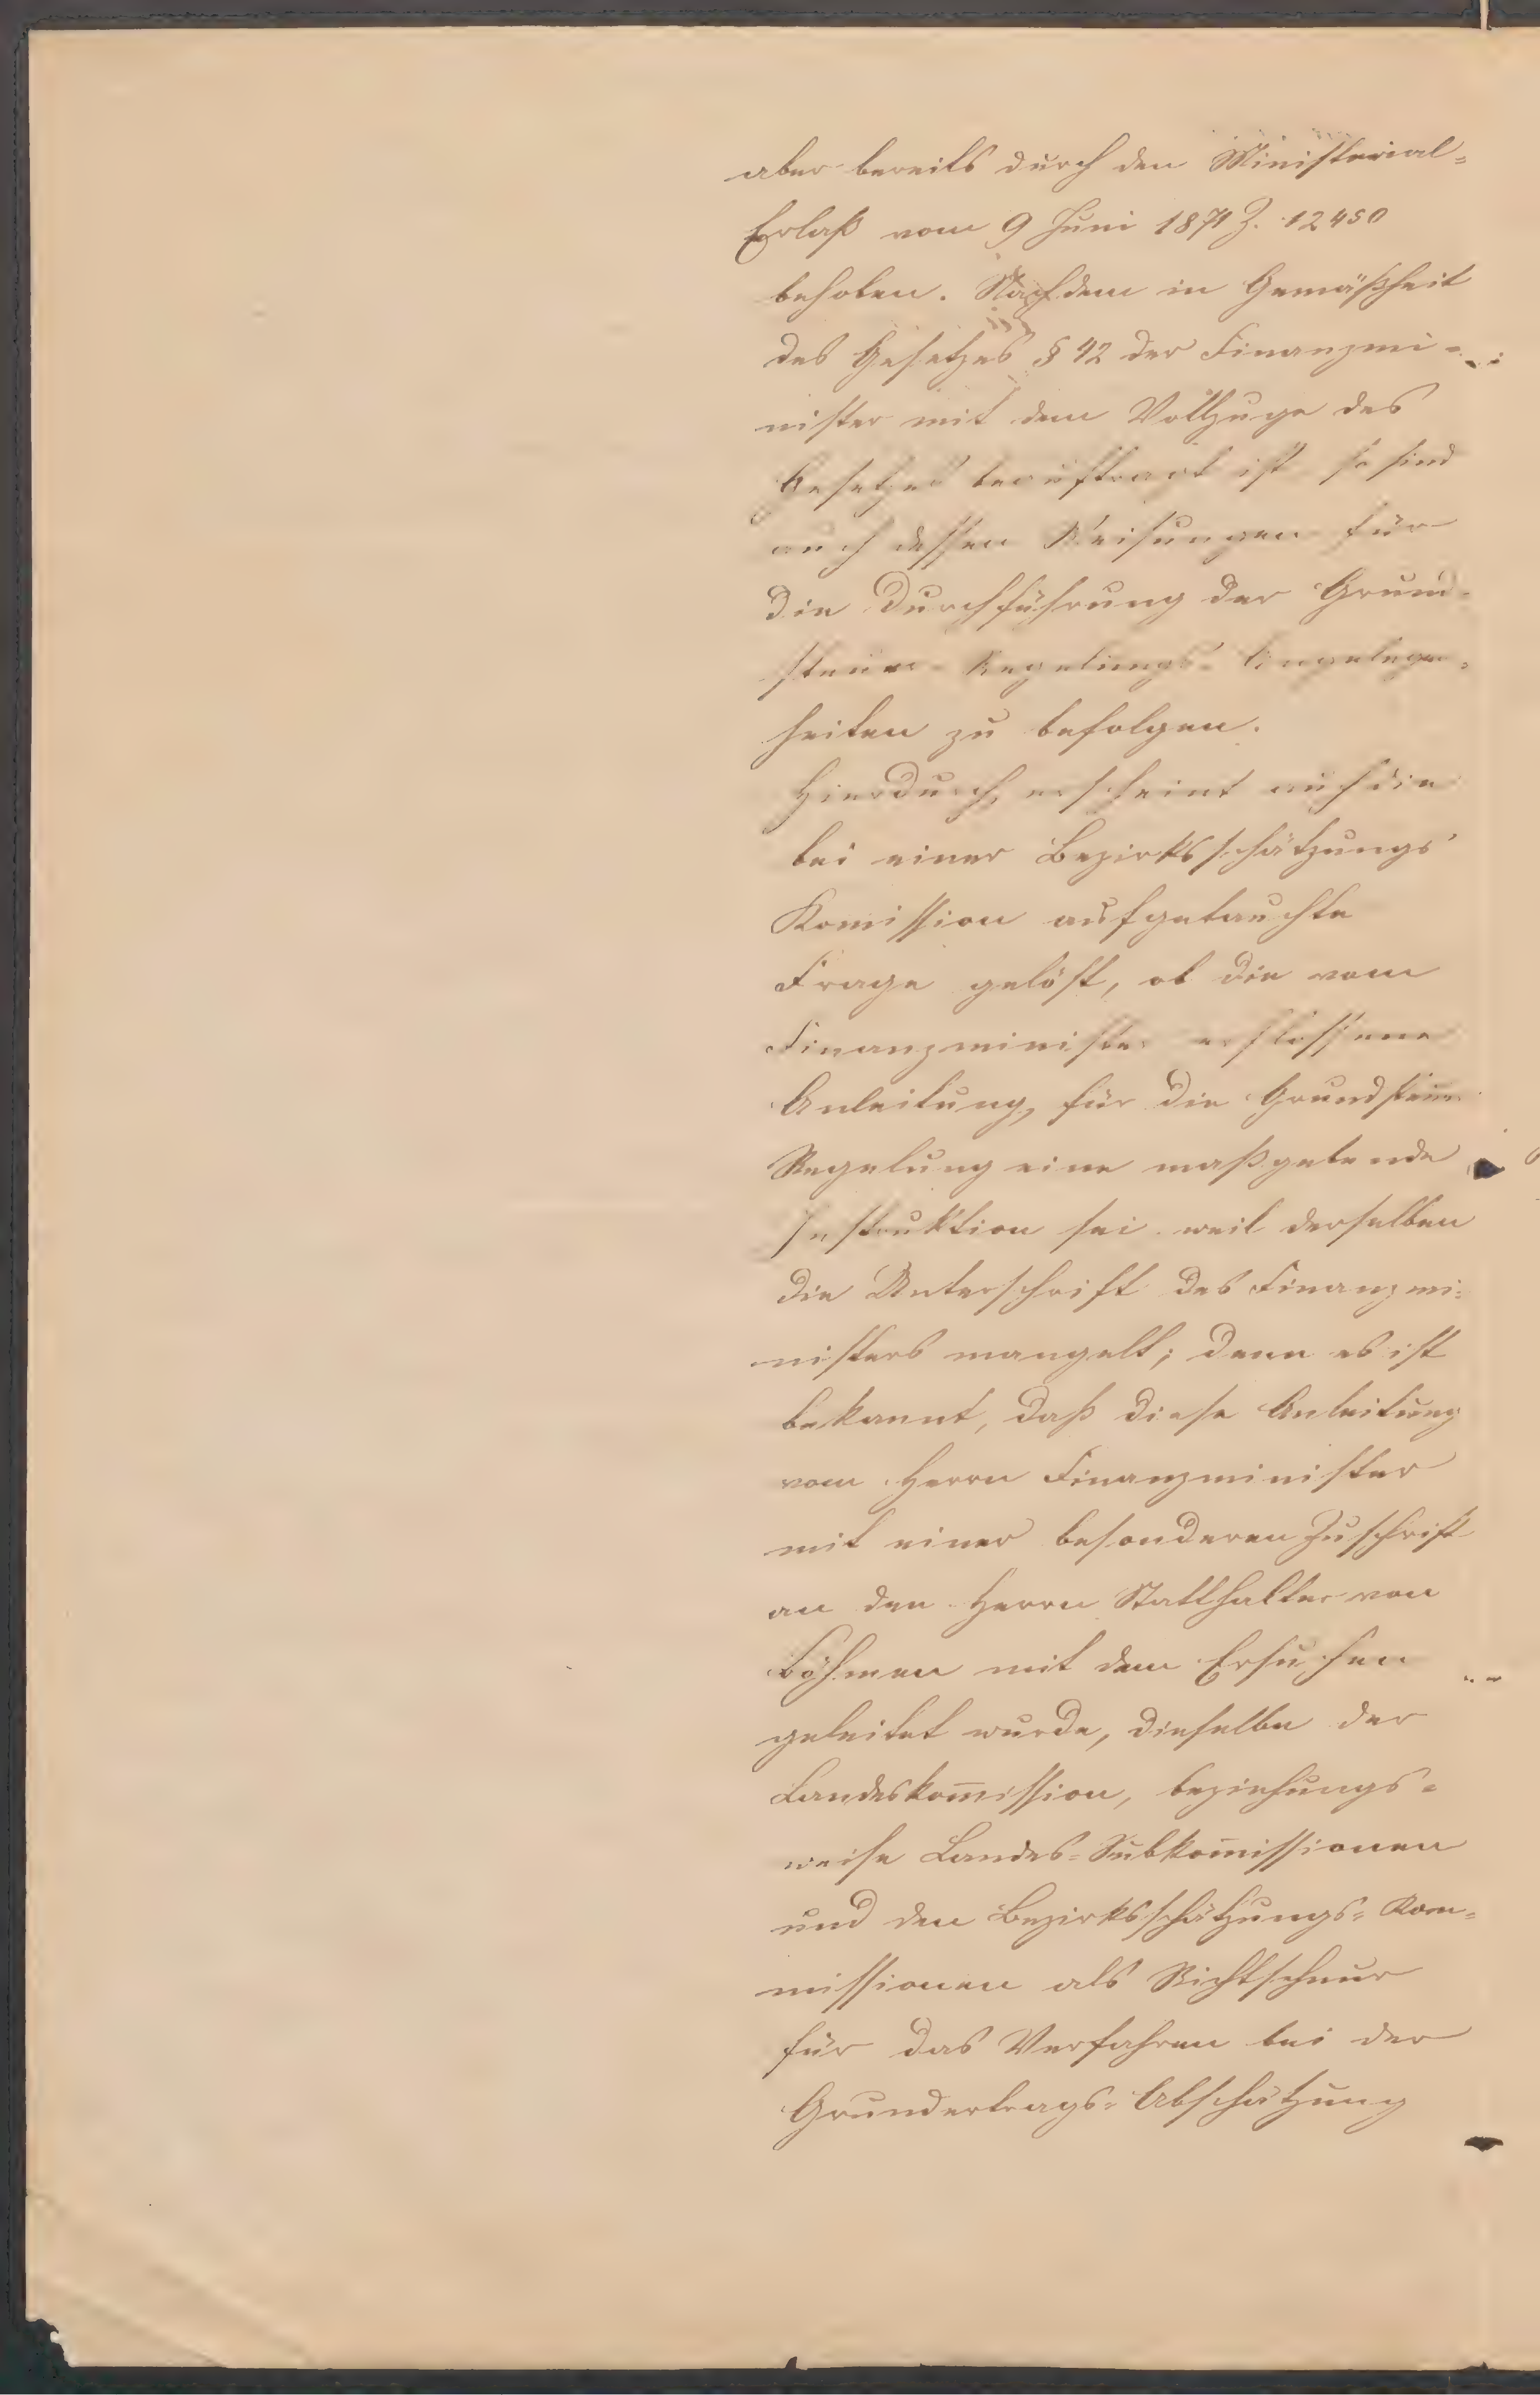 aber bereits durch den Ministerial=
Erlaß vom 9 Juni 1871 Z. 12450
behoben. Nachdem in Gemäßheit
des Gesetzes § 42 der Finanzmi=
nister mit dem Vollzuge des
Gesetzes beauftragt ist so sind
auch dessen Weisungen für
die Durchführung der Grund=
steuer-Regelungs-Angelegen=
heiten zu befolgen.
Hierdurch erscheint auch die
bei einer Bezirksschätzungs
Komission aufgetauchte
Frage gelöst, ob die vom
Finanzminister erflossene
Anleitung, für die Grundsteuer
Regelung eine maßgebende
Instruktion sei weil derselben
die Unterschrift des Finanzmi=
nisters mangelt; denn es ist
bekannt, daß diese Anleitung
vom Herrn Finanzminister
mit einer besonderen Zuschrift
an den Herrn Statthalter von
Böhmen mit dem Ersuchen
geleitet wurde, dieselbe der
Landeskom̅ission, beziehungs=
weise Landes=Subkom̅issionen
und den Bezirksschätzungs=Kom=
missionen als Richtschnur
für das Verfahren bei der
Grundertrags=Abschätzung